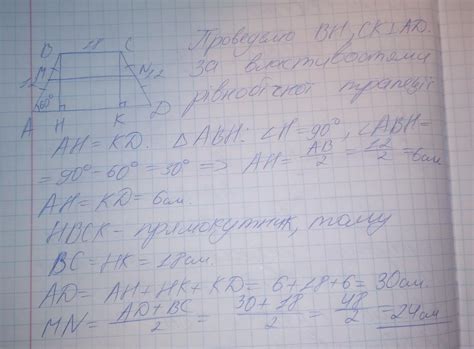 B 18 C
M N
12 12
60°
A H K D
Проведемо BH, CK⊥AD.
За властивостями
рівнобічної трапеції
AH = KD. △ABH: ∠H = 90°, ∠ABH =
= 90° - 60° = 30° => AH = AB/2 = 12/2 = 6см
AH = KD = 6см.
HBCK - прямокутник, тому
BC = HK = 18см.
AD = AH + HK + KD = 6 + 18 + 6 = 30см
MN = AD + BC/2 = 30 + 18/2 = 48/2 = 24см